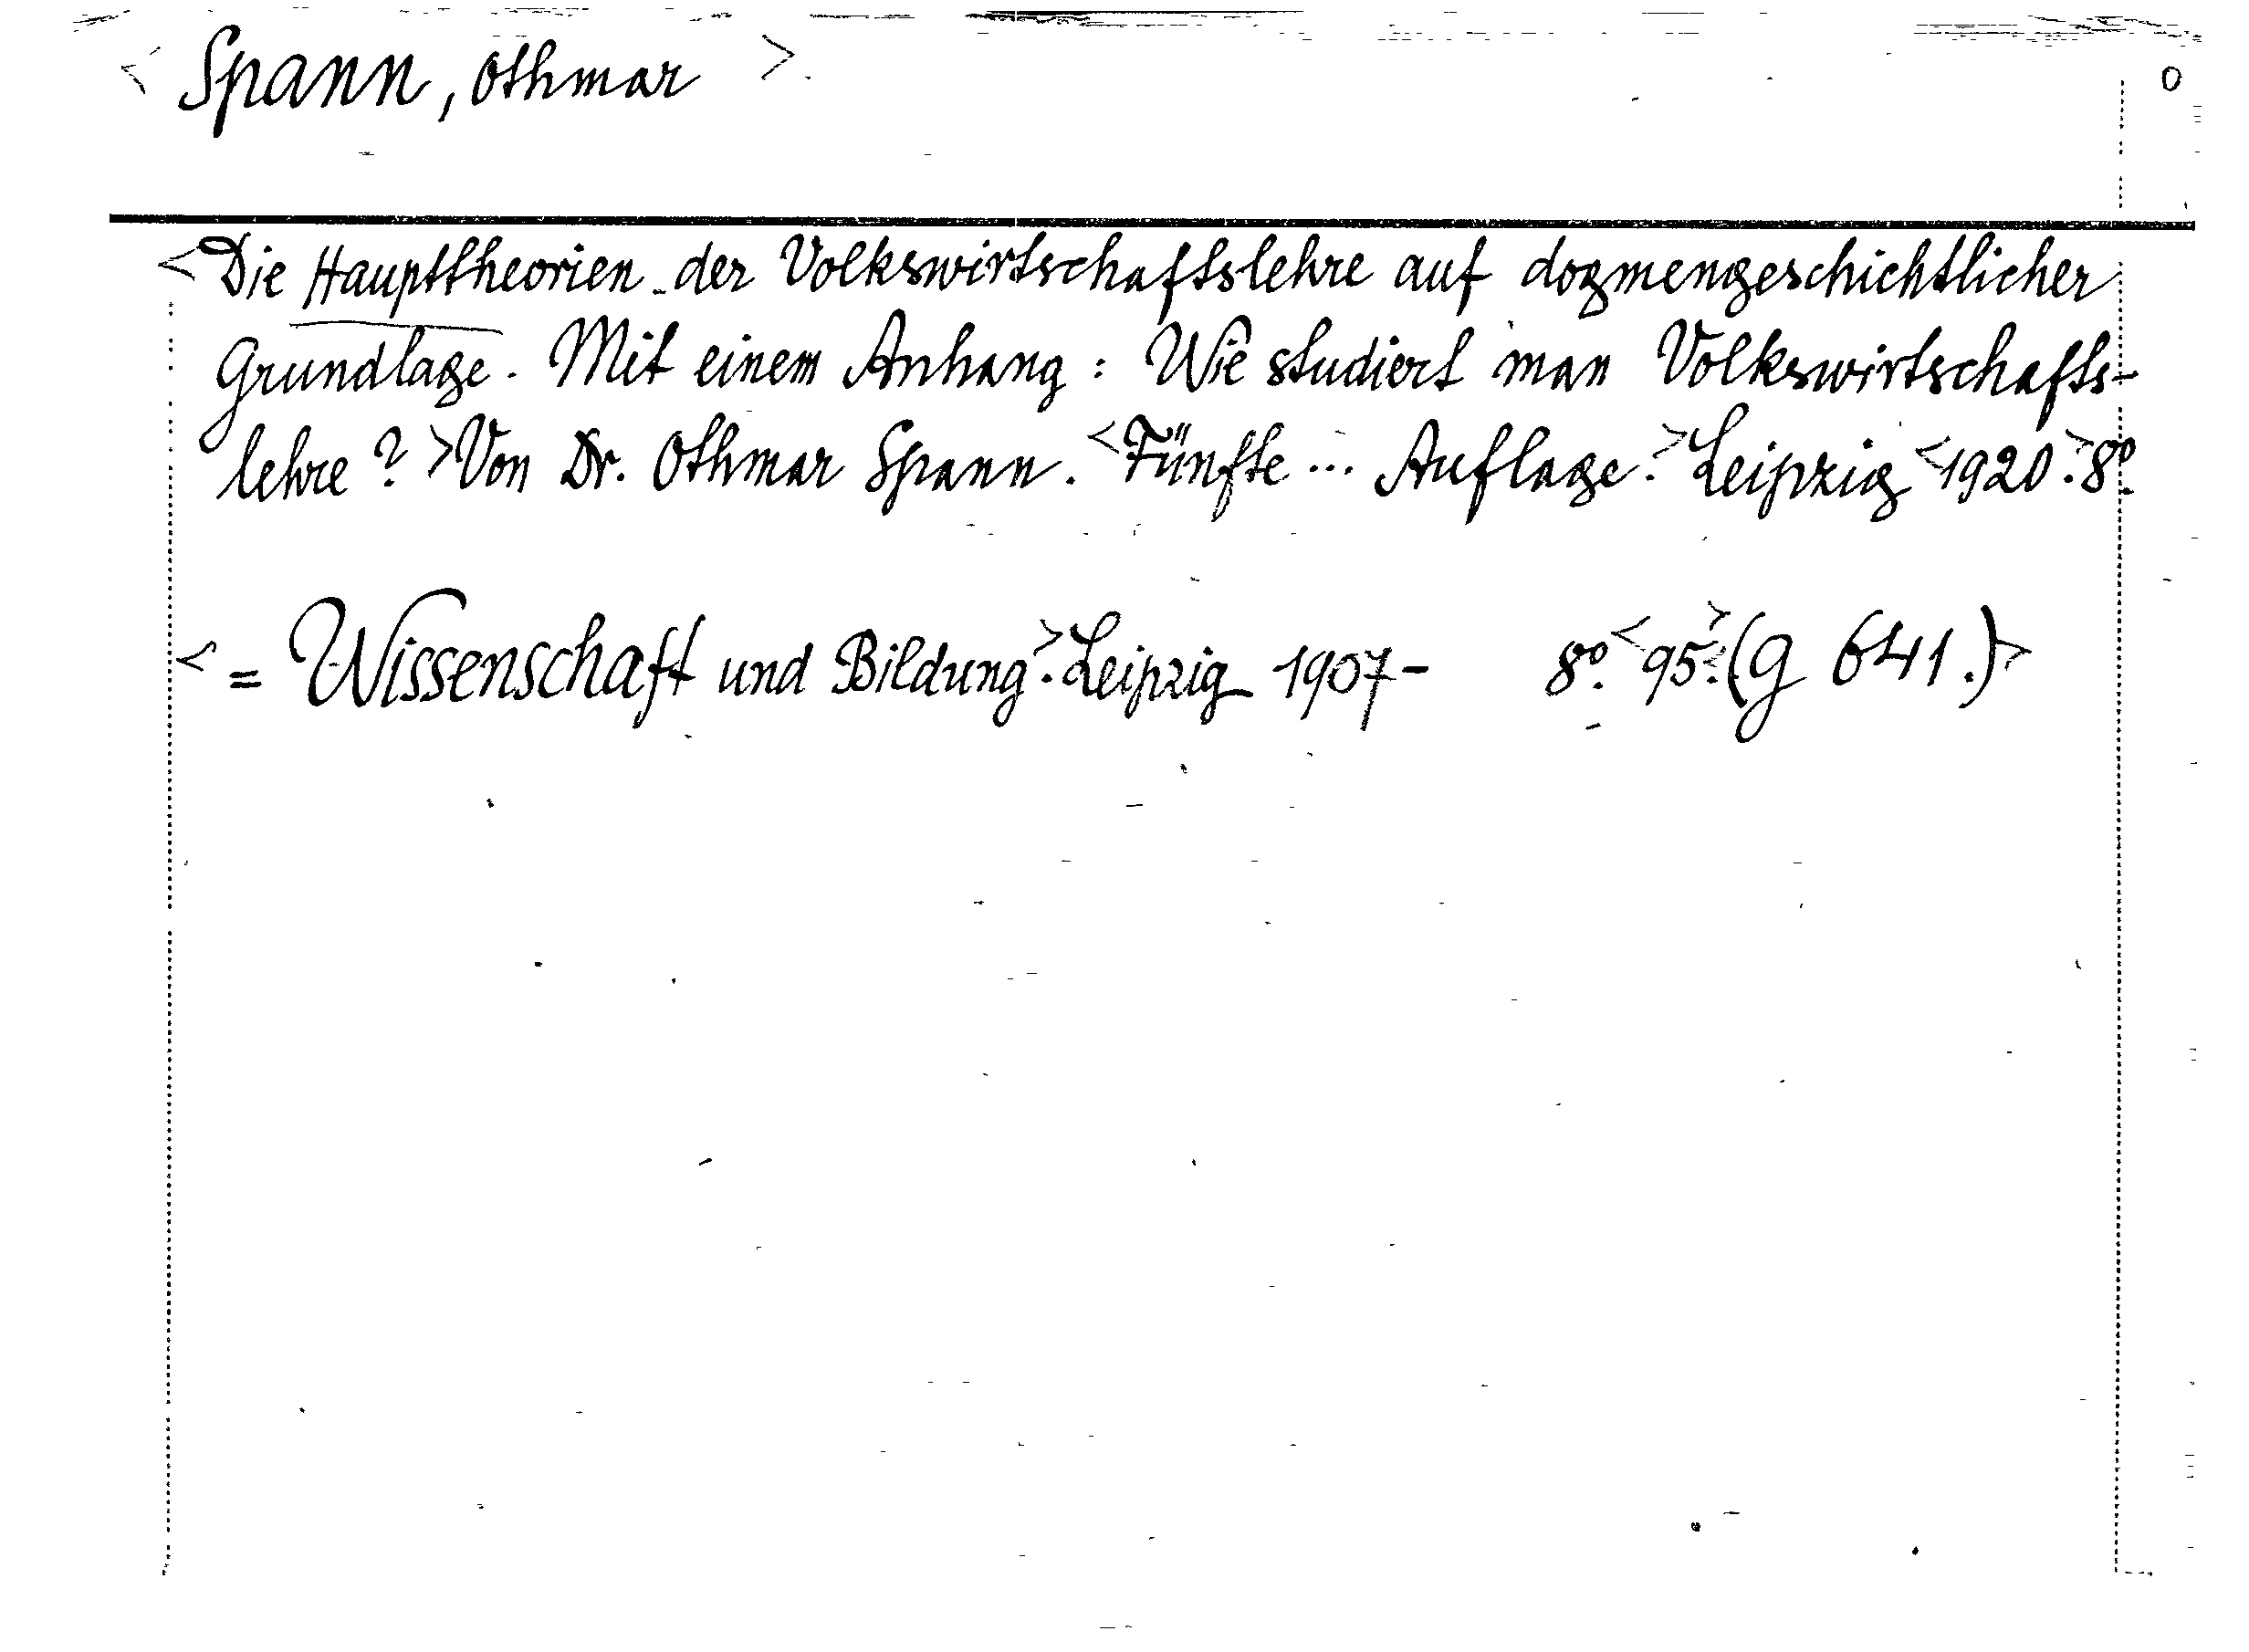 < Spann, Othmar >
o
<Die Haupttheorien der Volkswirtschaftslehre auf dogmengeschichtlicher
Grundlage. Mit einem Anhang: Wie studiert man Volkswirtschafts-
lehre?> Von Dr. Othmar Spann. <Fünfte ... Auflage.> Leipzig <1920.> 8º.
< = Wissenschaft und Bildung.> Leipzig 1907- 8º. <95.> <(g 641.)>